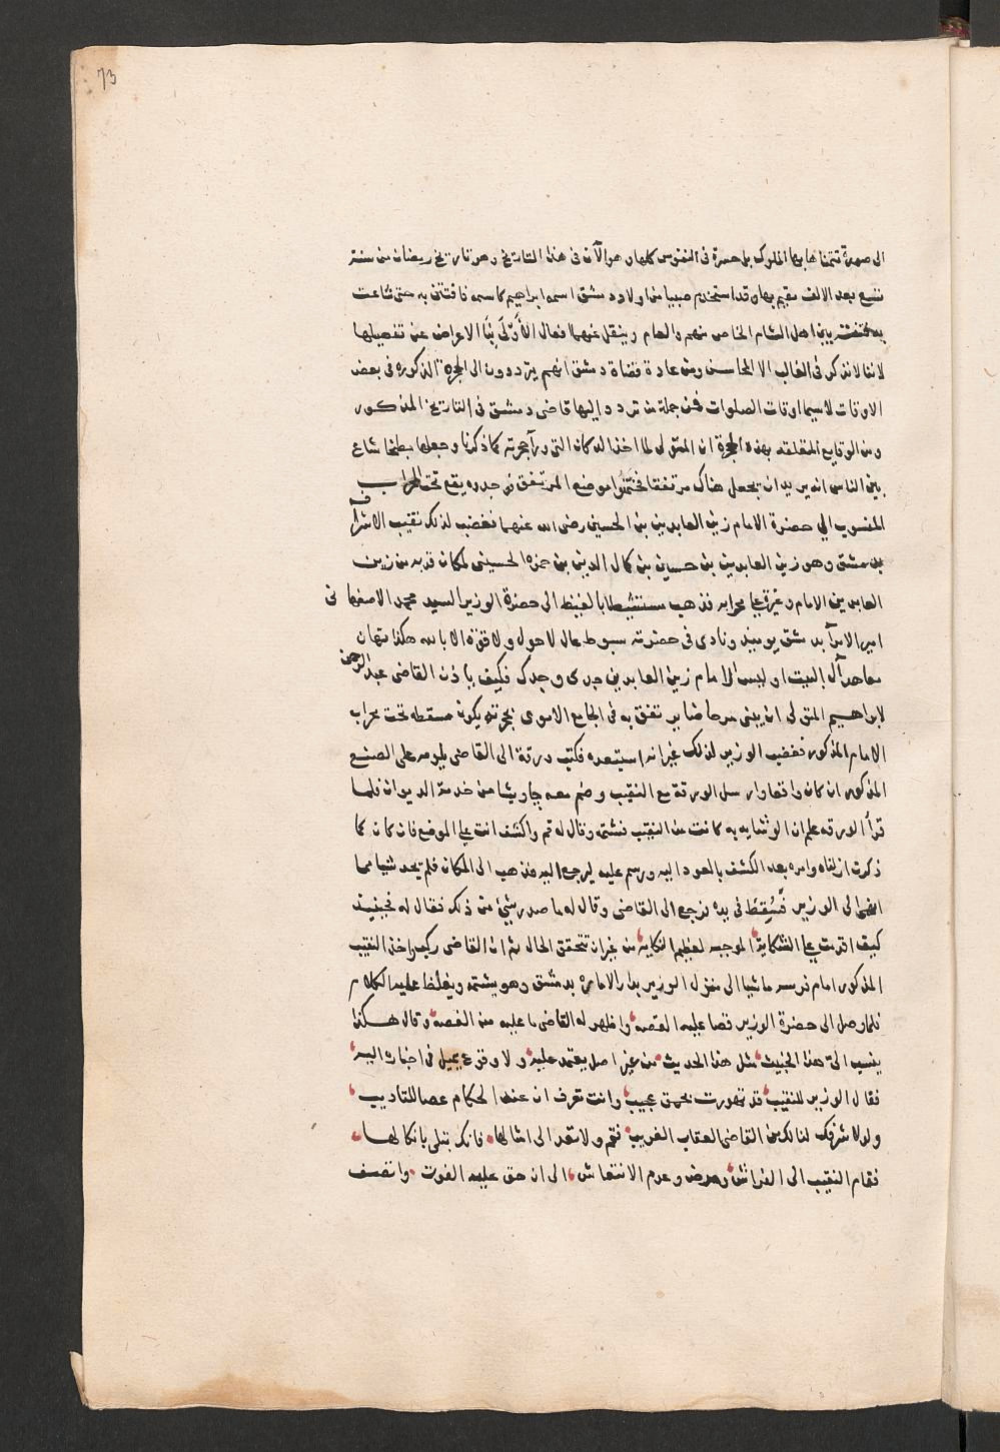 73
الى صورة تتمناها بها الملوك بل حسرة فى النفوس كلها وهو الآن فى هذا التاريخ وهو تاريخ رمضان من سنة
تسع بعد الالف مقيم بها وقد استخدم صبيا من اولاد دمشق اسمه ابراهيم كاسمه فافتتن به حتى شاعت
بين اهل الشام الخاص منهم والعام وينقل عنهما فعال الأَوْلَى بِنَا الاعراض عن تفصيلها
لاننا لا نذكر فى الغالب الا المحاسن ومن عادة قضاة دمشق انهم يترددون الى الحجرة المذكوره فى بعض
الاوقات لاسيما اوقات الصلوات فمن جملة من تردد اليها قاضى دمشق فى التاريخ المذكور
ومن الوقايع المتعلقه بهذه الحجرة ان المتولى لما اخذ الدكان التى ورآ حجرته كما ذكرنا وجعلها مطبخا شاع
بين الناس انه يريد ان يجعل هناك مرتفقا فخمنوا موضع المرتفق فى جدره يقع تحت المحراب
المنسوب الي حضرة الامام زين العابدين بن الحسين رضى الله عنهما فغضب لذلك نقيب الاشراف
بدمشق وهو زين العابدين بن حسين بن كمال الدين بن حمزه الحسينى لمكان قربه من زين
العابدين الامام وغيرة على محرابه فذهب مستشيطا بالغيظ الى حضرة الوزير السيد محمد الاصفهانى
امير الامرآ بدمشق يوميذ ونادى فى حضرته بسوط عال لا حول ولا قوة الا بالله هكذا تهان
معاهد آل البيت او ليس الامام زين العابدين جدى وجدك فكيف ياذن القاضى عبد الرحمن
لابراهيم المتولى ان يبنى مرحاضا يرتفق به فى الجامع الاموى بحجرته يكون مسقطه تحت محراب
الامام المذكور فغضب الوزير لذلك غير انه استبعده فكتب ورقة الى القاضى يلومه على الصنع
المذكور ان كان واقعا وارسل الورقة مع النقيب وضم معه جاويشا من خدمة الديوان فلما
قرأ الورقه علم ان الوشايه به كانت من النقيب فشتمه وقال له قم واكشف انت على الموضع فان كان كما
ذكرت ازلناه وامره بعد الكشف بالعود اليه ورسم عليه ليرجع اليه فذهب الى المكان فلم يجد شيا مما
انهى الى الوزير فَسُقِطَ فى يده فرجع الى القاضى وقال له ما صدر شئ من ذلك فقال له
كيف اقدمت على الشكاية الموجبه لعظيم النكايه من غير ان تتحقق الحال ثم ان القاضى ركب واخذ النقيب
المذكور امام فرسه ماشيا الى منزل الوزير بدار الاماره بدمشق وهو يشتمه ويغلظ عليه الكلام
فلما وصل الى حضرة الوزير قصا عليه القصه واظهر له القاضى ما عليه من الغصه وقال هكذا
ينسب الىّ هذا الخبيث مثل هذا الحديث من غير اصل يعتمد عليه ولا وفرع يميل فى اخباره اليه
فقال الوزير للنقيب قد تهورت بحمق عجيب وانت تعرف ان عند الحكام عصا للتاديب
ولولا شرفك لنالك من القاضى العقاب الغريب فقم ولا تعد الى امثالها فانك تبتلى بانكالها
فقام النقيب الى الفراش ومرض وعدم الانتعاش الى ان حق عليه الفوت وانقصف